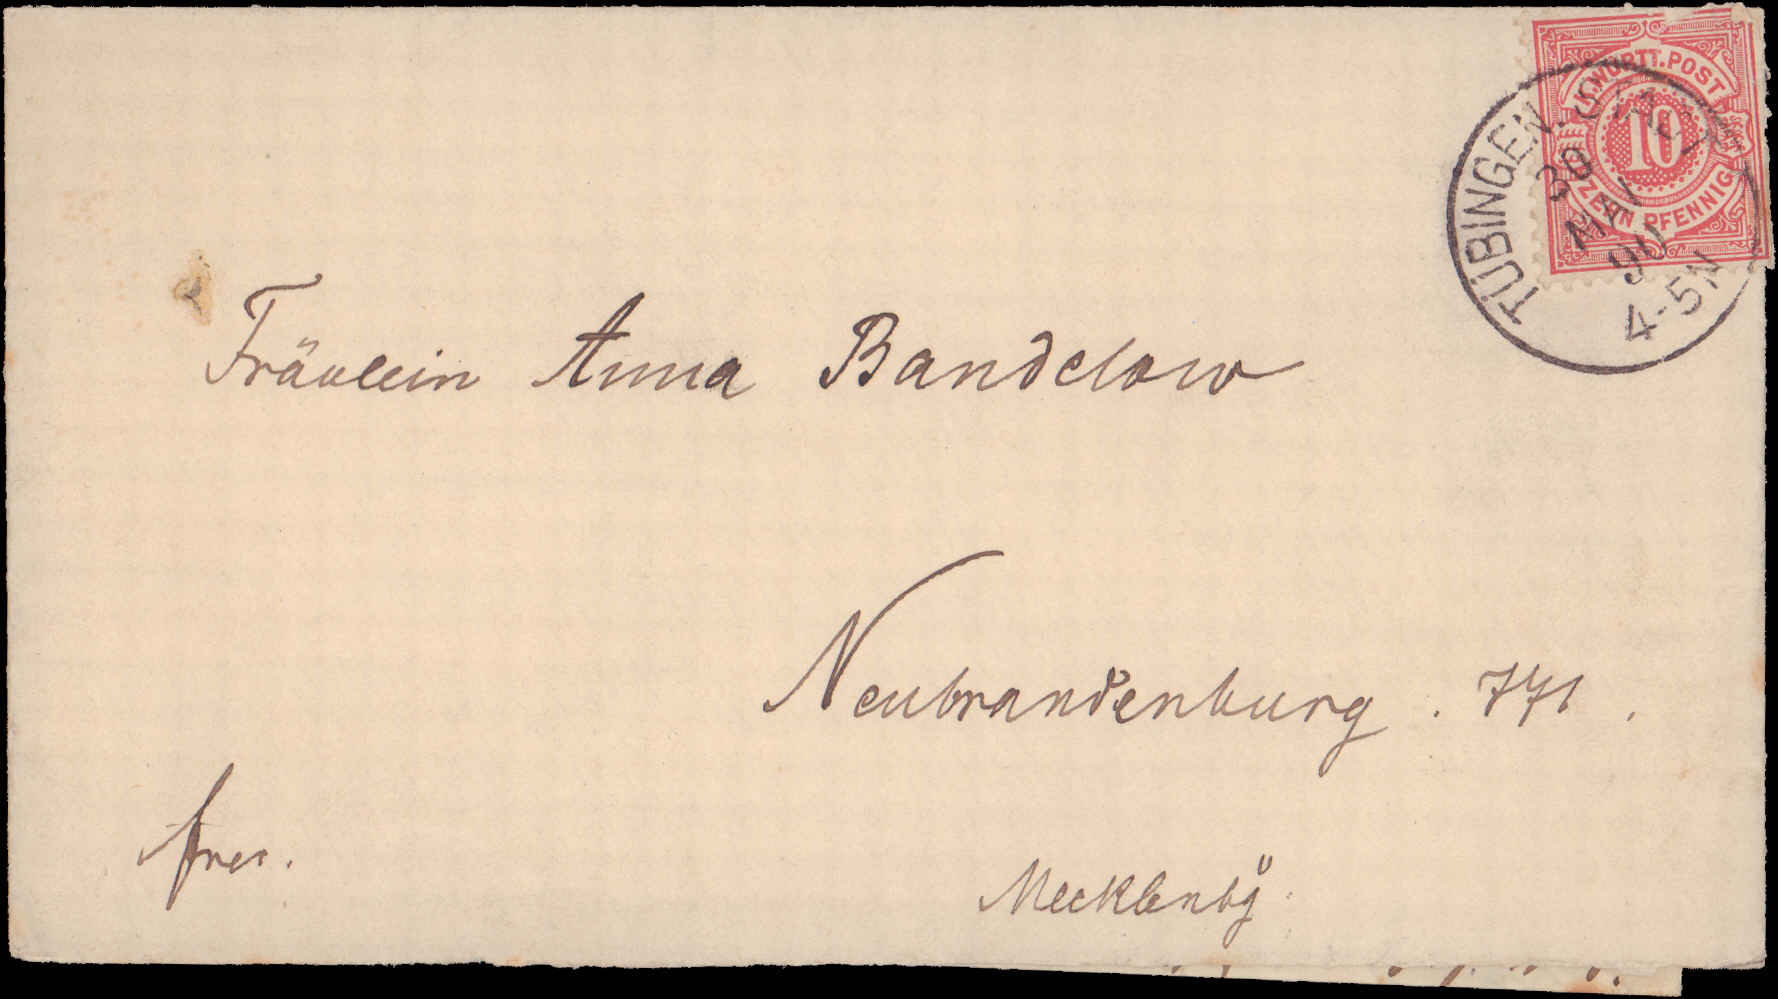 K.WÜRTT.POST
10
ZEHN PFENNIG
TÜBINGEN-STADT
30
MAI
90
4-5N
Fräulein Anna Bandelow
Neubrandenburg. 771.
frei.
Mecklenbg